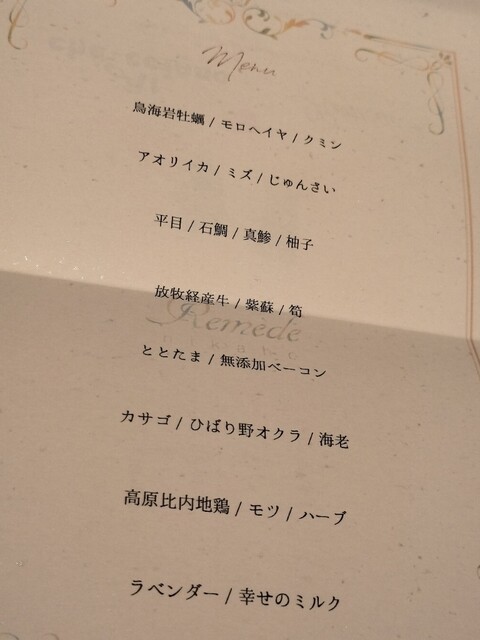 Menu
鳥海岩牡蠣 / モロヘイヤ / クミン
アオリイカ / ミズ / じゅんさい
平目 / 石鯛 / 真鯵 / 柚子
放牧経産牛 / 紫蘇 / 筍
Remède
ととたま / 無添加ベーコン
カサゴ / ひばり野オクラ / 海老
高原比内地鶏 / モツ / ハーブ
ラベンダー / 幸せのミルク